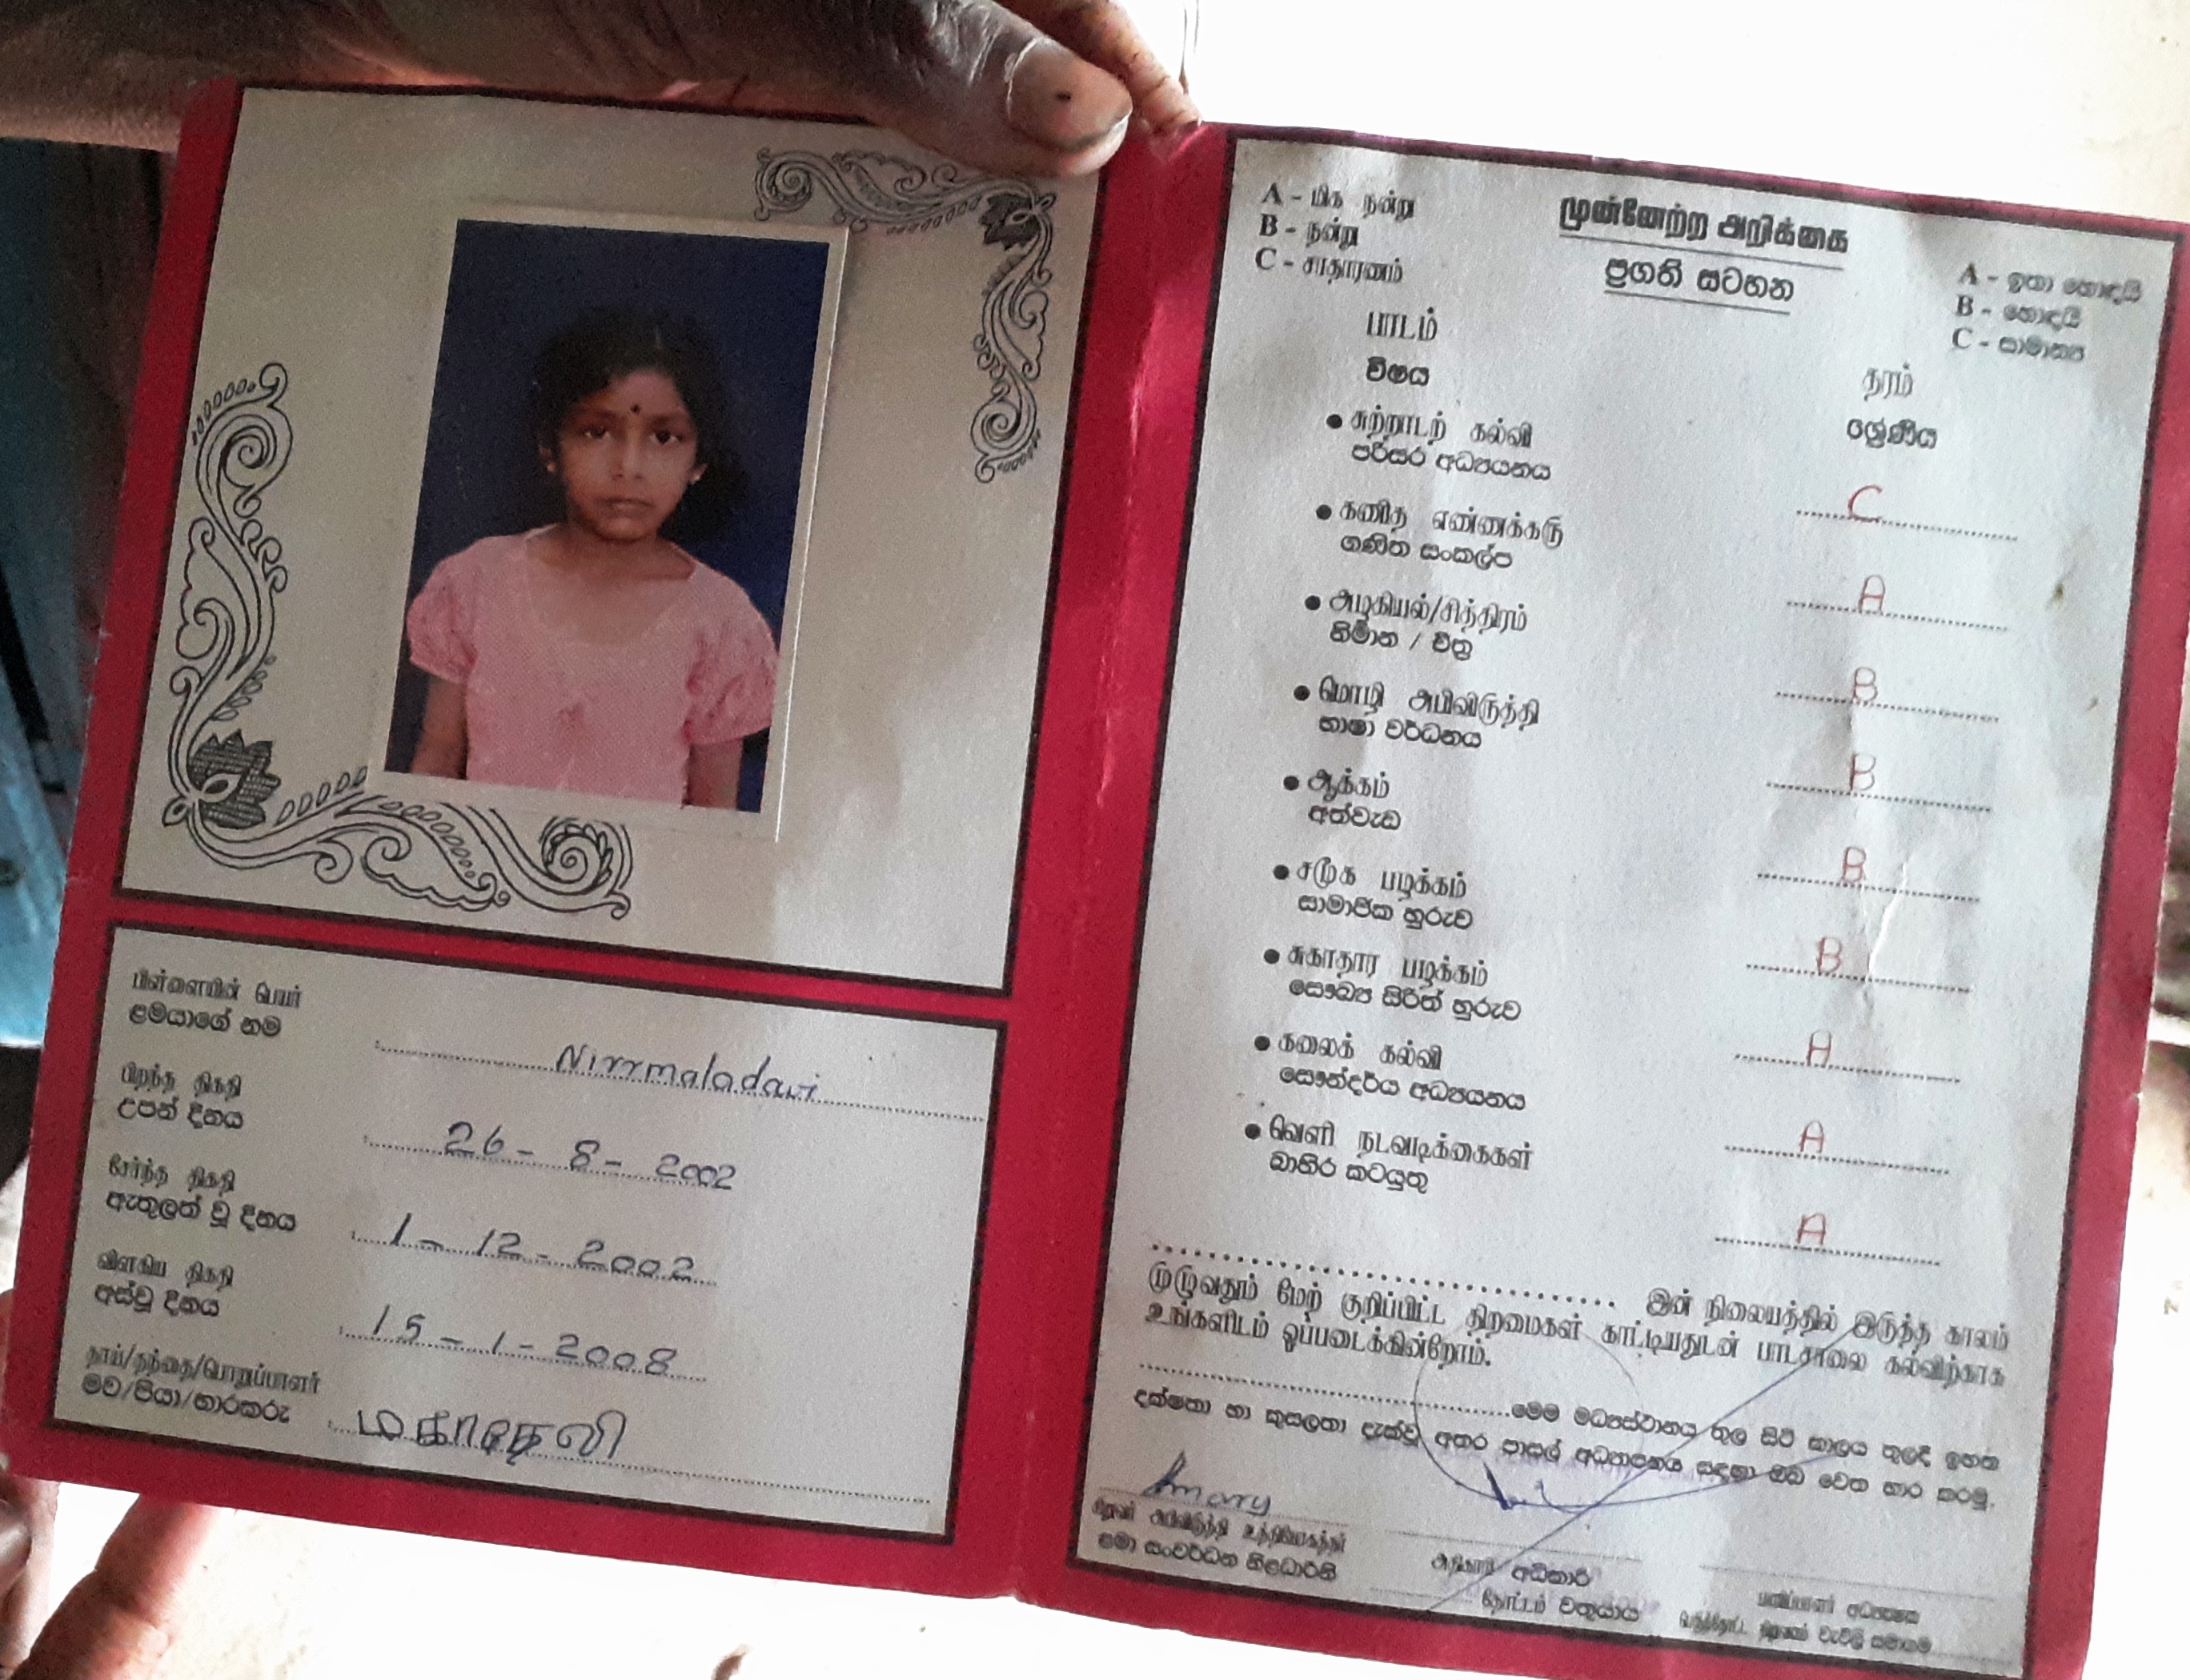 பிள்ளையின் பெயர்
ළමයාගේ නම
Nirrmaladavi
பிறந்த திகதி
උපන් දිනය
26 - 8 - 2002
சேர்ந்த திகதி
ඇතුලත් වූ දිනය
1 - 12 - 2002
விளகிய திகதி
අස්වූ දිනය
15 - 1 - 2008
தாய்/தந்தை/பொறுப்பாளர்
මව/පියා/භාරකරු
A - மிக நன்று
B - நன்று
C - சாதாரணம்
முன்னேற்ற அறிக்கை
ප්‍රගති සටහන
A - ඉතා හොඳයි
B - හොඳයි
C - සාමාන්‍ය
பாடம்
විෂය
தரம்
ශ්‍රේණිය
● சுற்றாடற் கல்வி
පරිසර අධ්‍යයනය
C
● கணித எண்ணக்கரு
ගණිත සංකල්ප
A
● அழகியல்/சித்திரம்
නිර්මාන / චිත්‍ර
B
● மொழி அபிவிருத்தி
භාෂා වර්ධනය
B
● ஆக்கம்
අත්වැඩ
B
● சமூக பழக்கம்
සාමාජික හුරුව
B
● சுகாதார பழக்கம்
සෞඛ්‍ය සිරිත් හුරුව
A
● கலைக் கல்வி
සෞන්දර්ය අධ්‍යයනය
A
● வெளி நடவடிக்கைகள்
බාහිර කටයුතු
A
இன் நிலையத்தில் இருந்த காலம்
முழுவதும் மேற் குறிப்பிட்ட திறமைகள் காட்டியதுடன் பாடசாலை கல்விற்காக
உங்களிடம் ஒப்படைக்கின்றோம்.
මෙම මධ්‍යස්ථානය තුල සිටි කාලය තුලදී ඉහත
දක්ෂතා හා කුසලතා දැක්වූ අතර පාසල් අධ්‍යාපනය සඳහා ඔබ වෙත භාර කරමු.
சிறுவர் அபிவிருத்தி உத்தியோகத்தர்
ළමා සංවර්ධන නිළධාරිනි
அதிகாரி අධිකාරි
தோட்டம் වතුයාය